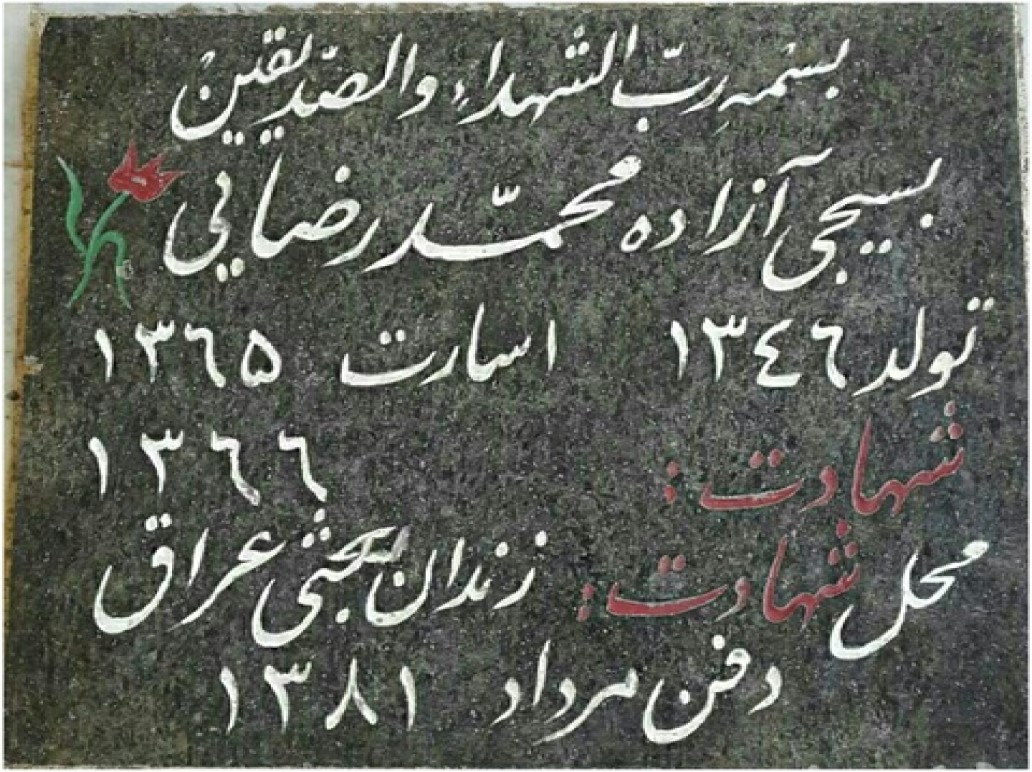 بسْمهِ ربّ الشهداءِ والصّدیقینْ
بسیجی آزاده محمّد رضایی
تولد ١٣٤٦ اسارت ١٣٦۵
شهادت : ١٣٦٦
محل شهادت : زندان عراق
دفن مرداد ١٣٨١